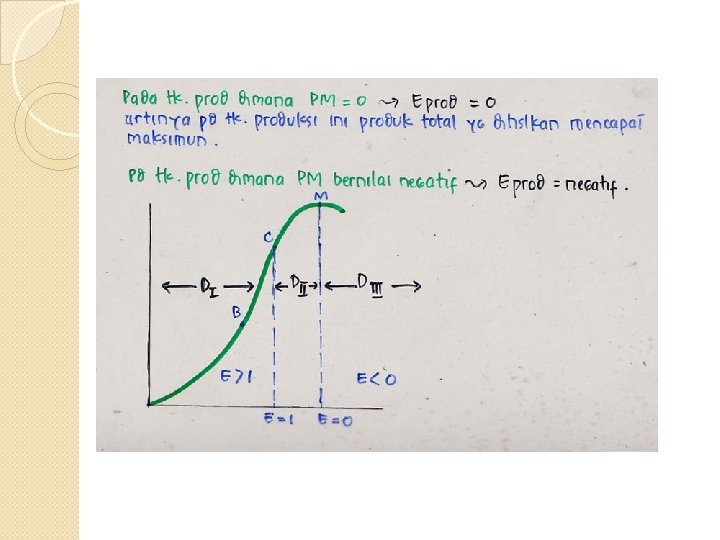 Pada tk. prod dimana PM = 0 ⤳ Eprod = 0
artinya pd tk. produksi ini produk total yg dihslkan mencapai
maksimun.
Pd tk. prod dimana PM bernilai negatif ⤳ Eprod = negatif.
M
C
D_I
D_II
D_III
B
E>1
E<0
E=1
E=0